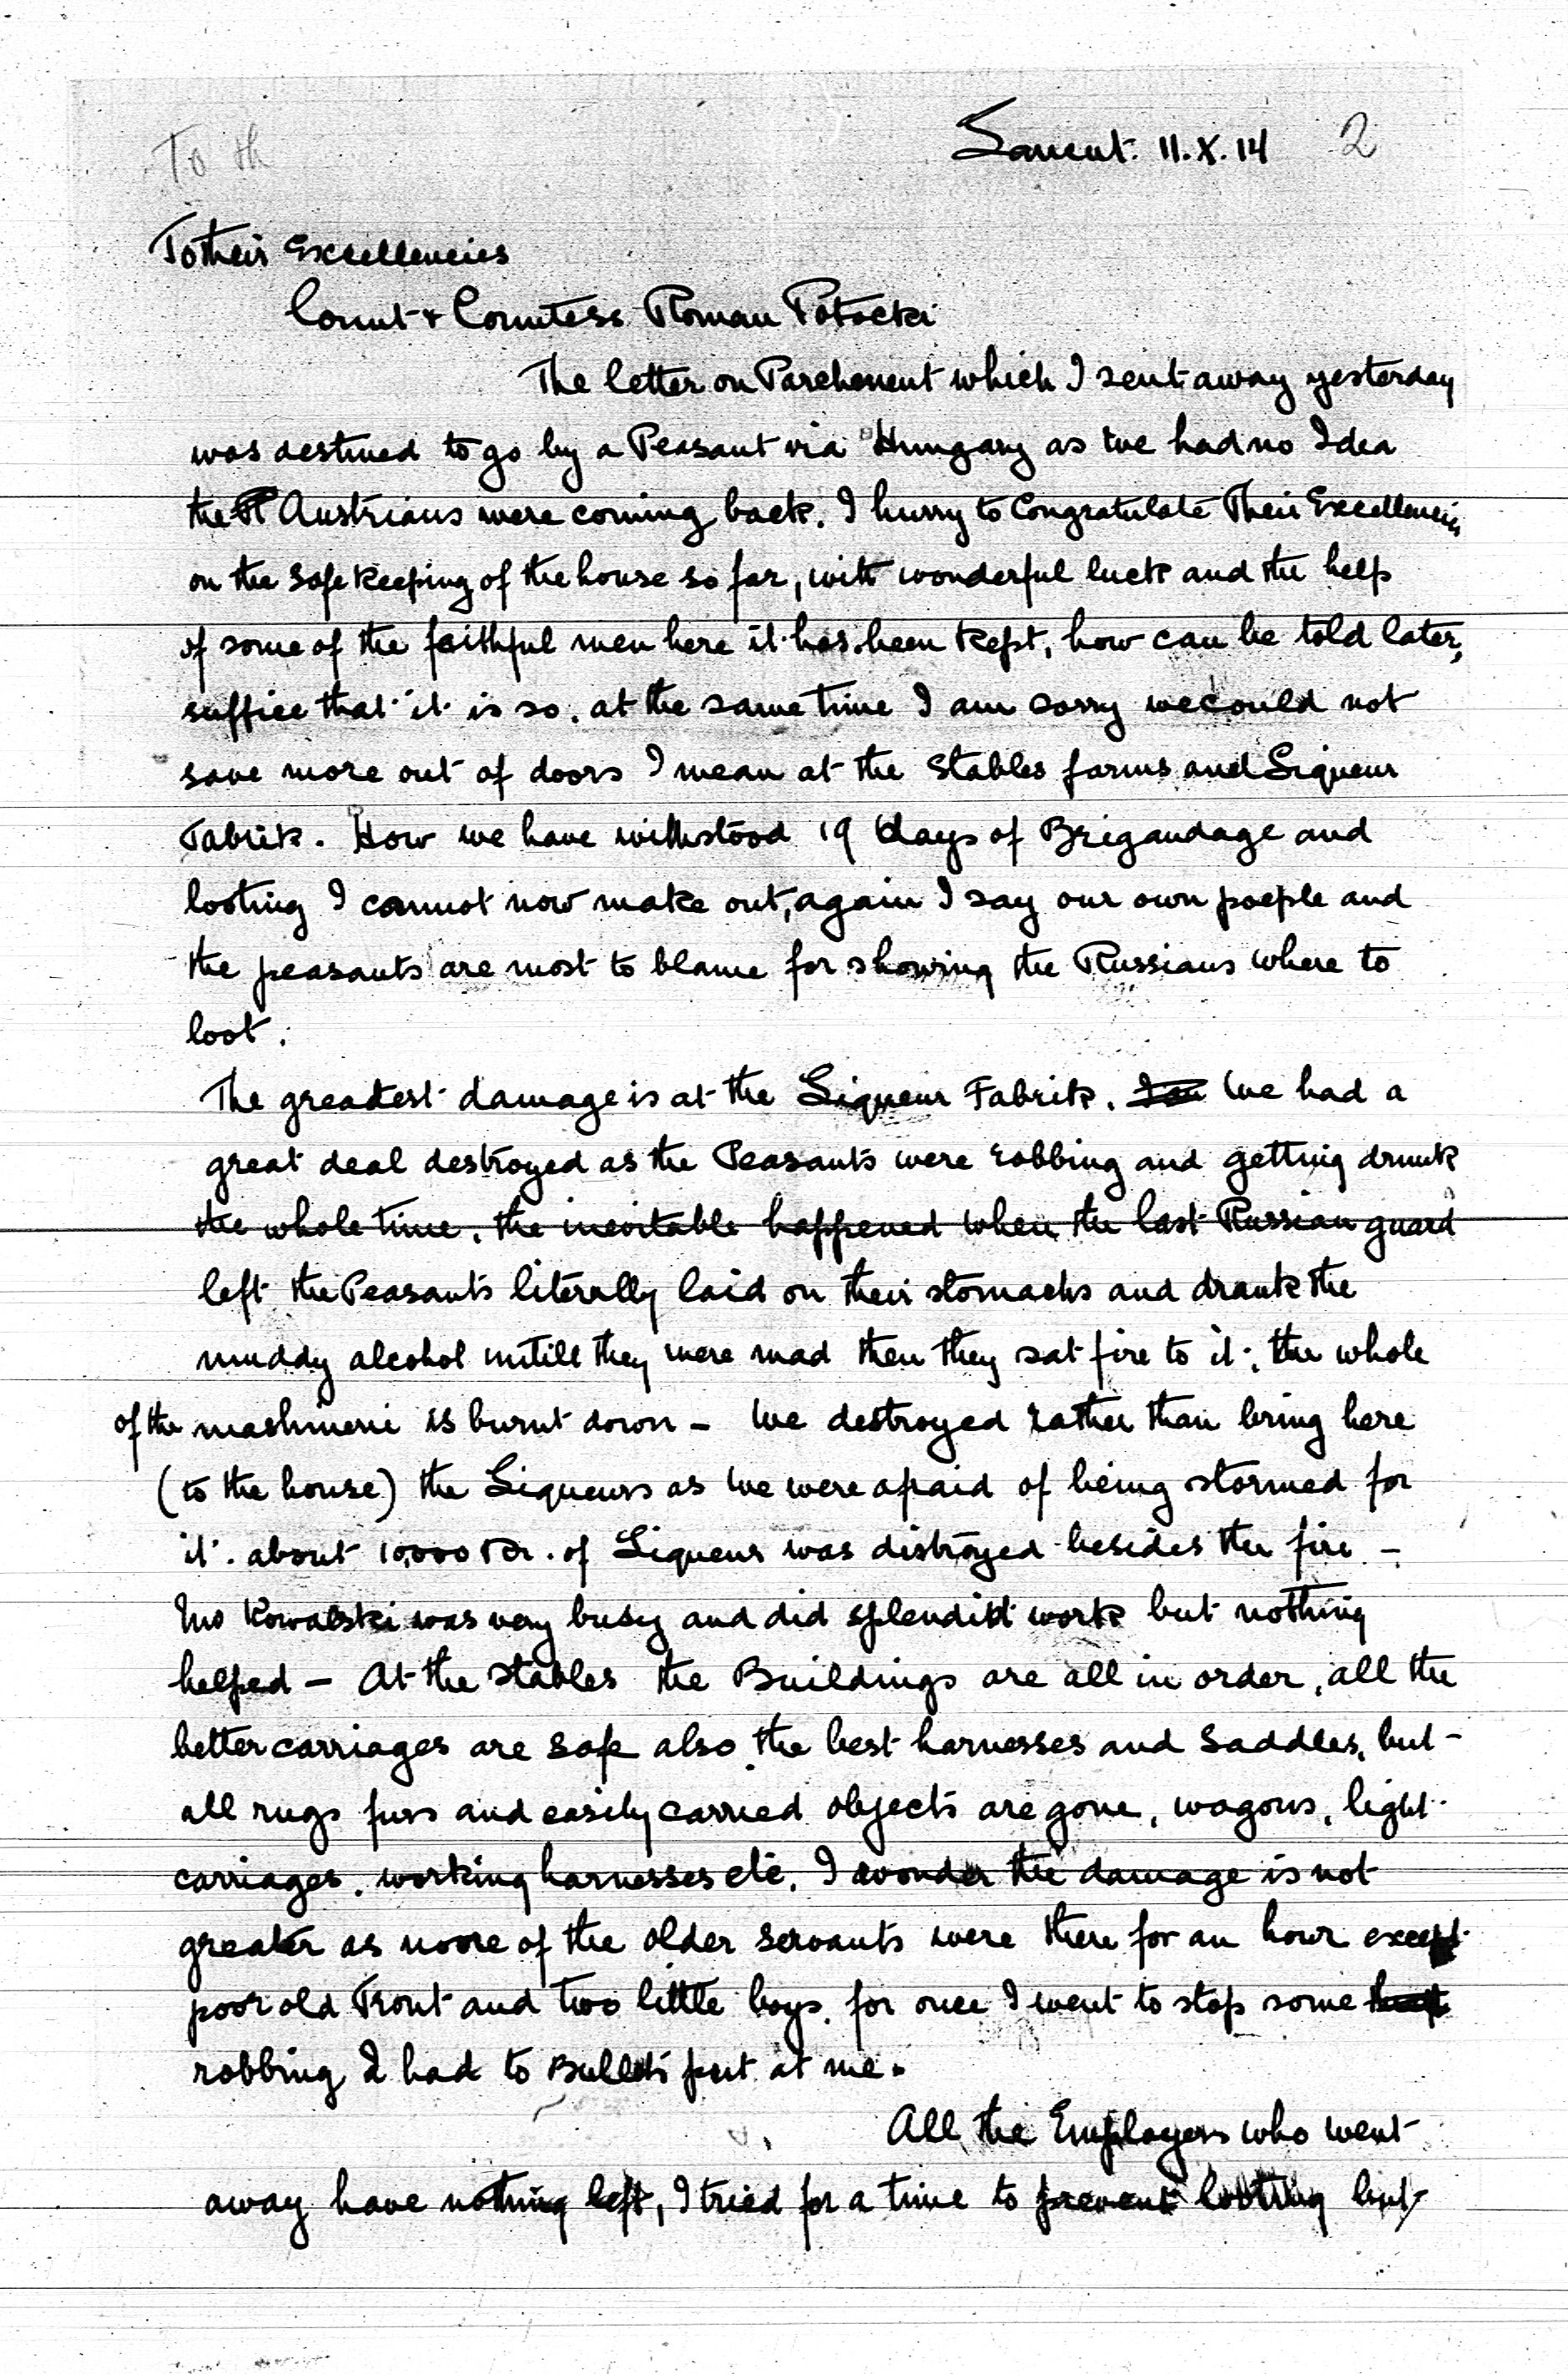 To th
Lancut. 11.X.14 2
To their Excellencies
Count & Countess Roman Potocki
The letter on Parchement which I sent away yesterday
was destined to go by a Peasant via Hungary as we had no Idea
the Austrians were coming back. I hurry to Congratulate Their Excellencies
on the safe keeping of the house so far, with wonderful luck and the help
of some of the faithful men here it has been kept, how can be told later,
suffice that it is so. at the same time I am sorry we could not
save more out of doors I mean at the Stables farms and Liqueur
Fabrik. How we have withstood 19 days of Brigandage and
looting I cannot now make out, again I say our own poeple and
the peasants are most to blame for showing the Russians where to
loot.
The greatest damage is at the Liqueur Fabrik. We had a
great deal destroyed as the Peasants were robbing and getting drunk
the whole time. the inevitable happened when the last Russian guard
left the Peasants literally laid on their stomachs and drank the
muddy alcohol untill they were mad then they sat fire to it, the whole
of the mashinerie is burnt down - We destroyed rather than bring here
(to the house) the Liqueurs as we were afraid of being stormed for
it. about 10,000 Kr. of Liqueur was distroyed besides the fire -
Kowalski was very busy and did splendidt work but nothing
helped - At the stables the Buildings are all in order, all the
better carriages are safe also the best harnesses and saddles, but -
all rugs furs and easily carried objects are gone, wagons, light
carriages, working harnesses etc. I wonder the damage is not
greater as none of the older servants were there for an hour except
poor old Trout and two little boys. for once I went to stop some
robbing I had to Bullets put at me.
All the Employers who went
away have nothing left, I tried for a time to prevent looting but